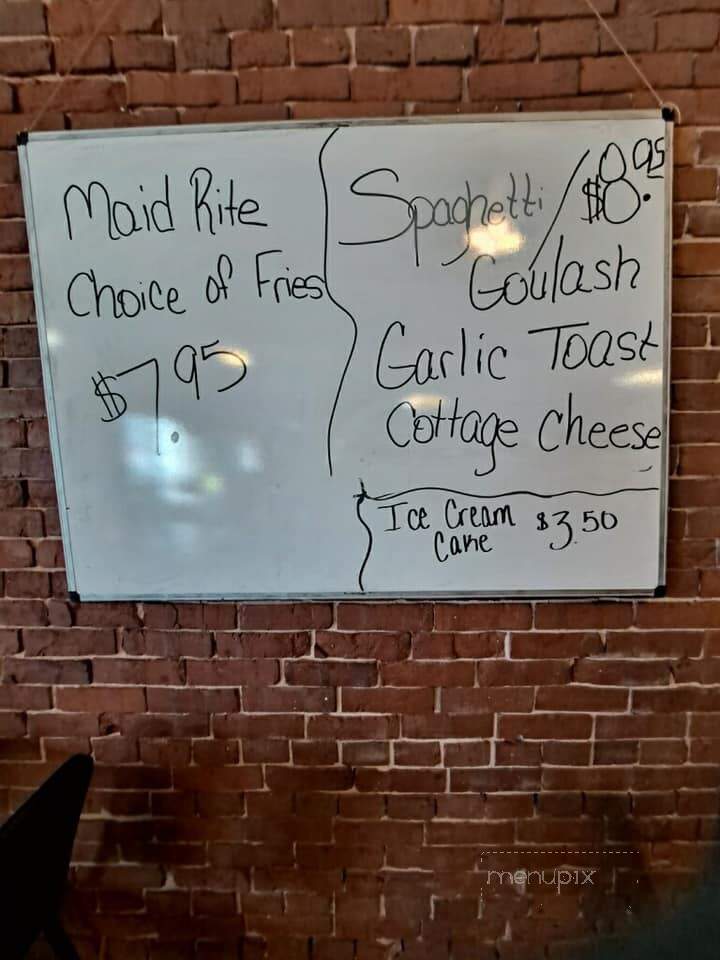 Maid Rite
Choice of Fries
$7.95
Spaghetti / $8.95
Goulash
Garlic Toast
Cottage Cheese
Ice Cream $3.50
Cake
menupix